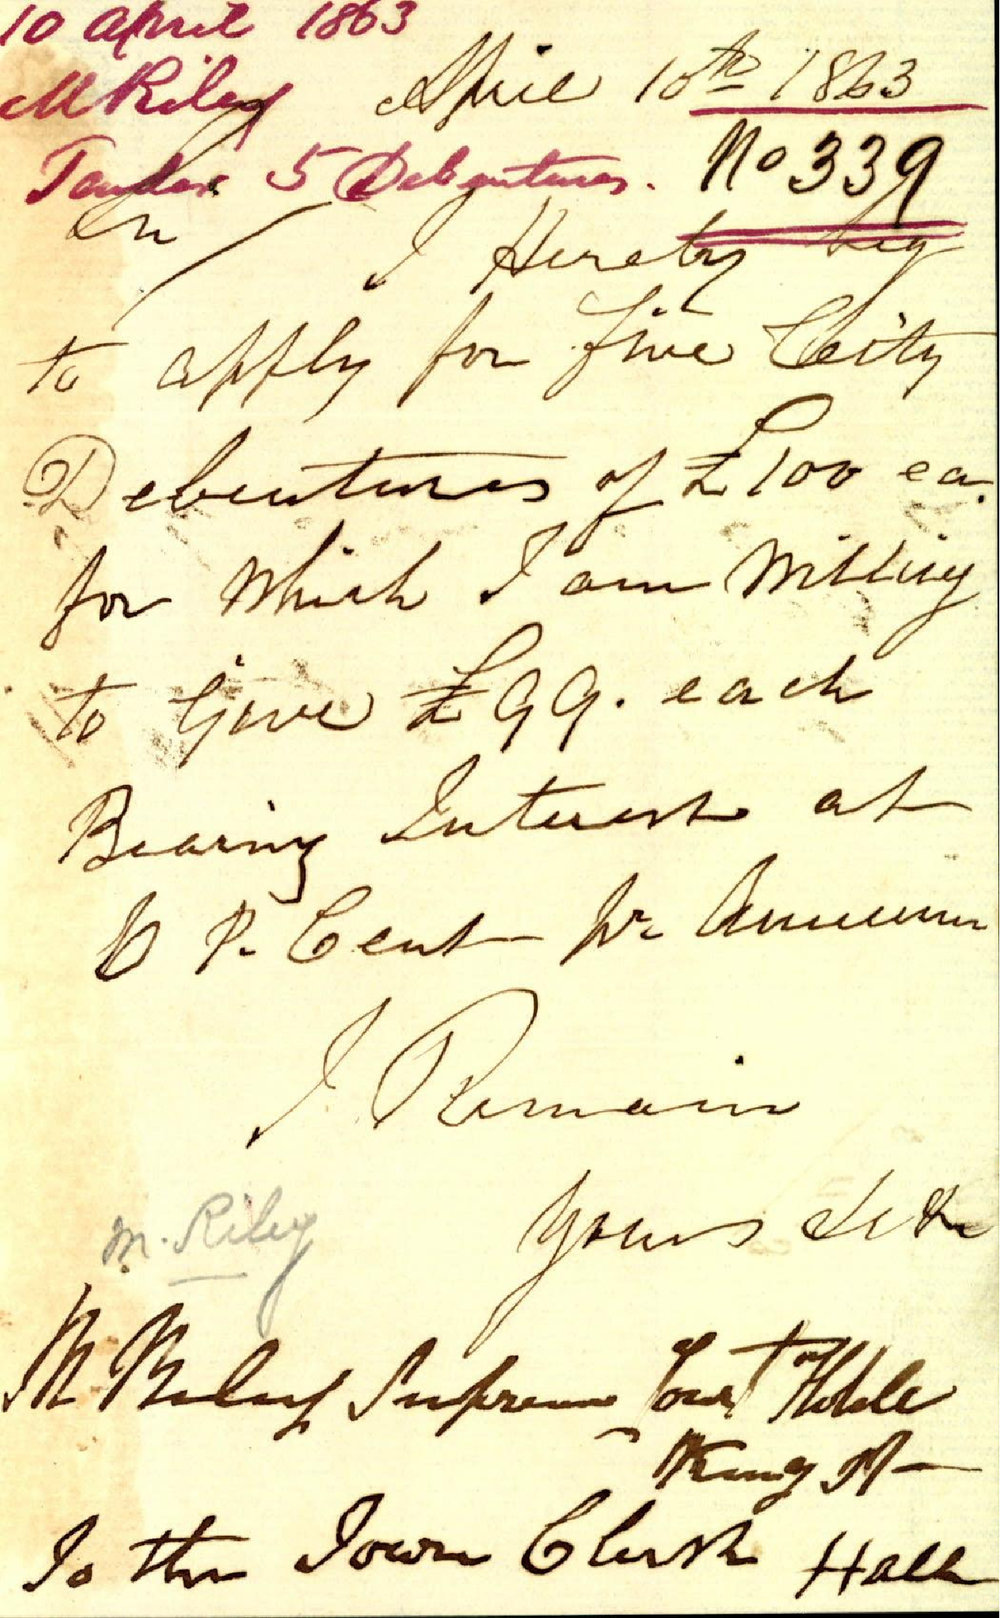 10 April 1863
M Riley
April 10th 1863
Tender 5 Debentures.
No 339
Sir
I Hereby beg
to apply for five City
Debentures of £100 ea.
for Which I am Willing
to Give £99. each
Bearing Interest at
6 P. Cent pr Annum
I Remain
Yours &c
M. Riley
M Riley Supreme Court Hotel
King St
To the Town Clerk Hall